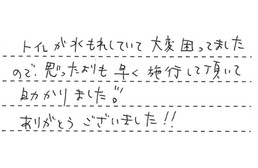 トイレが水もれしていて大変困ってました
ので、思ったよりも早く施行して頂いて
助かりました!!
ありがとうございました!!